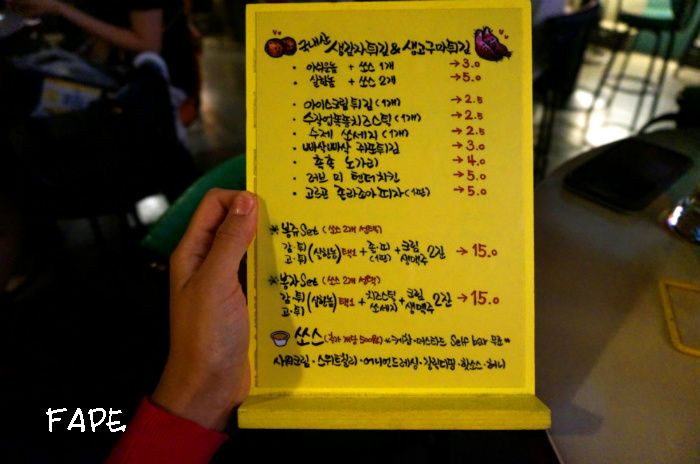 국내산 생감자튀김 & 생고구마튀김
· 아쉬운놈 + 쏘스 1개 → 3.0
· 실한놈 + 쏘스 2개 → 5.0
· 아이스크림튀김 (1개) → 2.5
· 수작업똥똥치즈스틱 (1개) → 2.5
· 수제 쏘세지 (1개) → 2.5
· 빠삭빠삭 쥐포튀김 → 3.0
· 촉촉 노가리 → 4.0
· 러브 미 텐더치킨 → 5.0
· 고르곤 졸라조아 피자 (1판) → 5.0
*봉쥬Set (쏘스 2개 선택)
감·튀 고·튀 (실한놈) 택1 + 졸·피 (1판) + 크림 생맥주 2잔 → 15.0
*봉자Set (쏘스 2개 선택)
감·튀 고·튀 (실한놈) 택1 + 치즈스틱 쏘세지 + 크림 생맥주 2잔 → 15.0
쏘스 (추가 개당 500원) * 케찹·머스타드 Self bar
사워크림·스위트칠리·어니언드레싱·갈릭디핑·핫소스·허니
FAPE